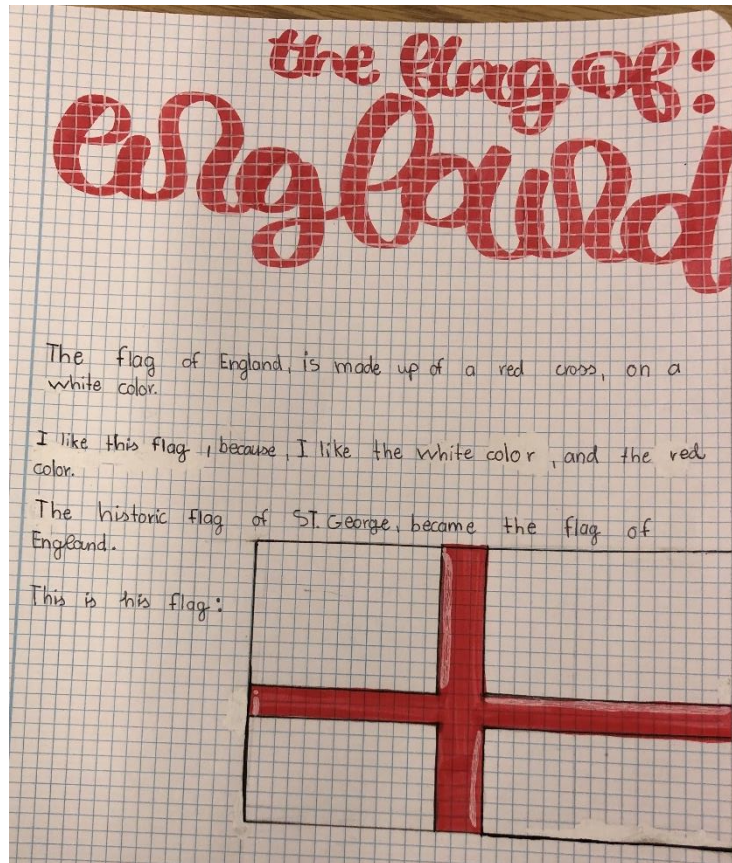 the flag of:
England
The flag of England, is made up of a red cross, on a
white color.
I like this flag, because, I like the white color, and the red
color.
The historic flag of ST. George, became the flag of
England.
This is his flag: